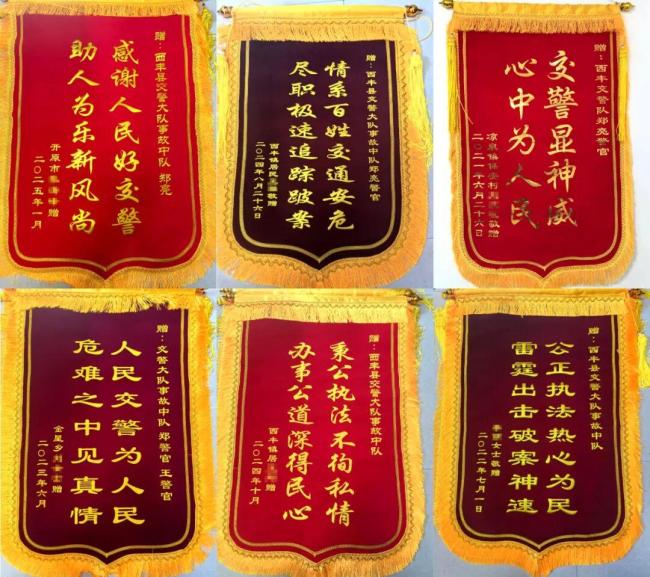 赠：西丰县交警大队事故中队 郑亮
感谢人民好交警
助人为乐新风尚
开原市 赠
二〇二五年一月
赠：西丰县交警大队事故中队郑亮警官
情系百姓交通安危
尽职极速追踪跛案
西丰镇居民 敬赠
二〇二四年八月二十六日
赠：西丰交警队郑亮警官
交警显神威
心中为人民
凉泉镇保安村 敬赠
二〇二一年六月二十六日
赠：交警大队事故中队 郑警官 王警官
人民交警为人民
危难之中见真情
金星乡 赠
二〇二三年六月
赠：西丰县交警大队事故中队
秉公执法不徇私情
办事公道深得民心
西丰镇居 赠
二〇二四年十月
赠：西丰县交警大队事故中队
公正执法热心为民
雷霆出击破案神速
李 女士敬赠
二〇二二年七月一日